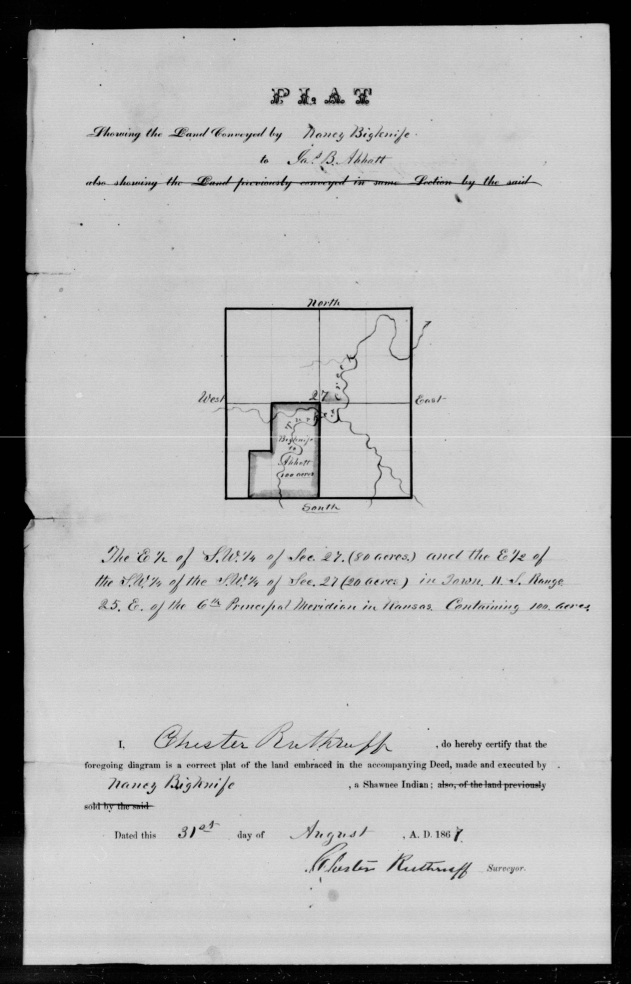 PLAT
Showing the Land Conveyed by Nancy Bigknife
to Jas. B. Abbott
also showing the Land previously conveyed in same Section by the said
North
West
27
East
Creek
Turkey
Bigknife
to
Abbott
100 acres
South
The E 1/2 of S.W. 1/4 of Sec. 27. (80 acres.) and the E 1/2 of
the S.W. 1/4 of the S.W. 1/4 of Sec. 27 (20 acres) in Town. 11 S. Range
25. E. of the 6th Principal Meridian in Kansas. Containing 100. acres
I, Chester Ruthruff , do hereby certify that the
foregoing diagram is a correct plat of the land embraced in the accompanying Deed, made and executed by
Nancy Bigknife , a Shawnee Indian; also, of the land previously
sold by the said
Dated this 31st day of August , A. D. 1867.
Chester Ruthruff Surveyor.